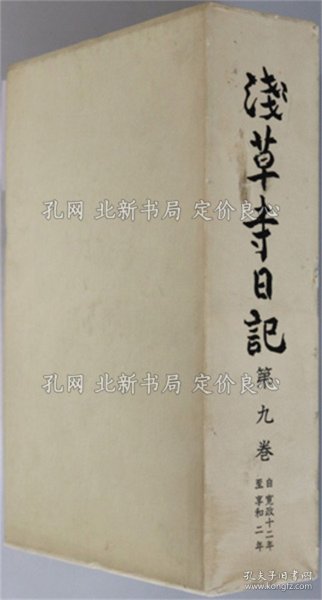 淺草寺日記
第九巻
自 寛政十二年
至 享和二年
孔网 北新书局 定价良心
孔网 北新书局 定价良心
孔网 北新书局 定价良心
孔夫子旧书网